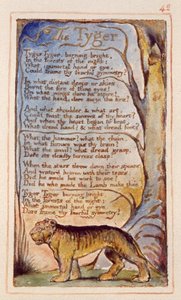 42
The Tyger
Tyger Tyger, burning bright,
In the forests of the night;
What immortal hand or eye,
Could frame thy fearful symmetry?
In what distant deeps or skies,
Burnt the fire of thine eyes?
On what wings dare he aspire?
What the hand, dare sieze the fire?
And what shoulder, & what art,
Could twist the sinews of thy heart?
And when thy heart began to beat,
What dread hand? & what dread feet?
What the hammer? what the chain,
In what furnace was thy brain?
What the anvil? what dread grasp,
Dare its deadly terrors clasp?
When the stars threw down their spears
And water'd heaven with their tears:
Did he smile his work to see?
Did he who made the Lamb make thee?
Tyger Tyger burning bright,
In the forests of the night:
What immortal hand or eye,
Dare frame thy fearful symmetry?